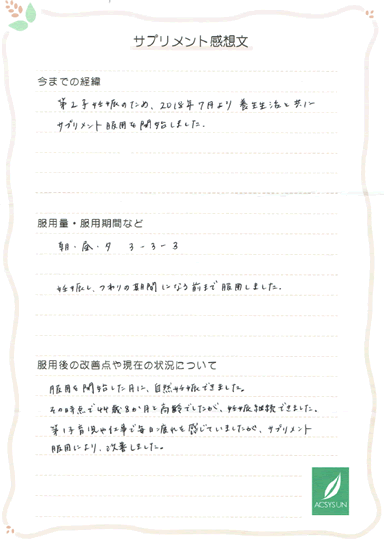 サプリメント感想文
今までの経緯
第2子妊娠のため、2018年7月より 養生生活と共に
サプリメント服用を開始しました。
服用量・服用期間など
朝・昼・夕 3-3-3
妊娠し、つわりの期間になる前まで服用しました。
服用後の改善点や現在の状況について
服用を開始した月に、自然妊娠できました。
その時点で44歳8か月と高齢でしたが、妊娠継続できました。
第1子育児や仕事で毎日疲れを感じていましたが、サプリメント
服用により、改善しました。
ACSYSUN